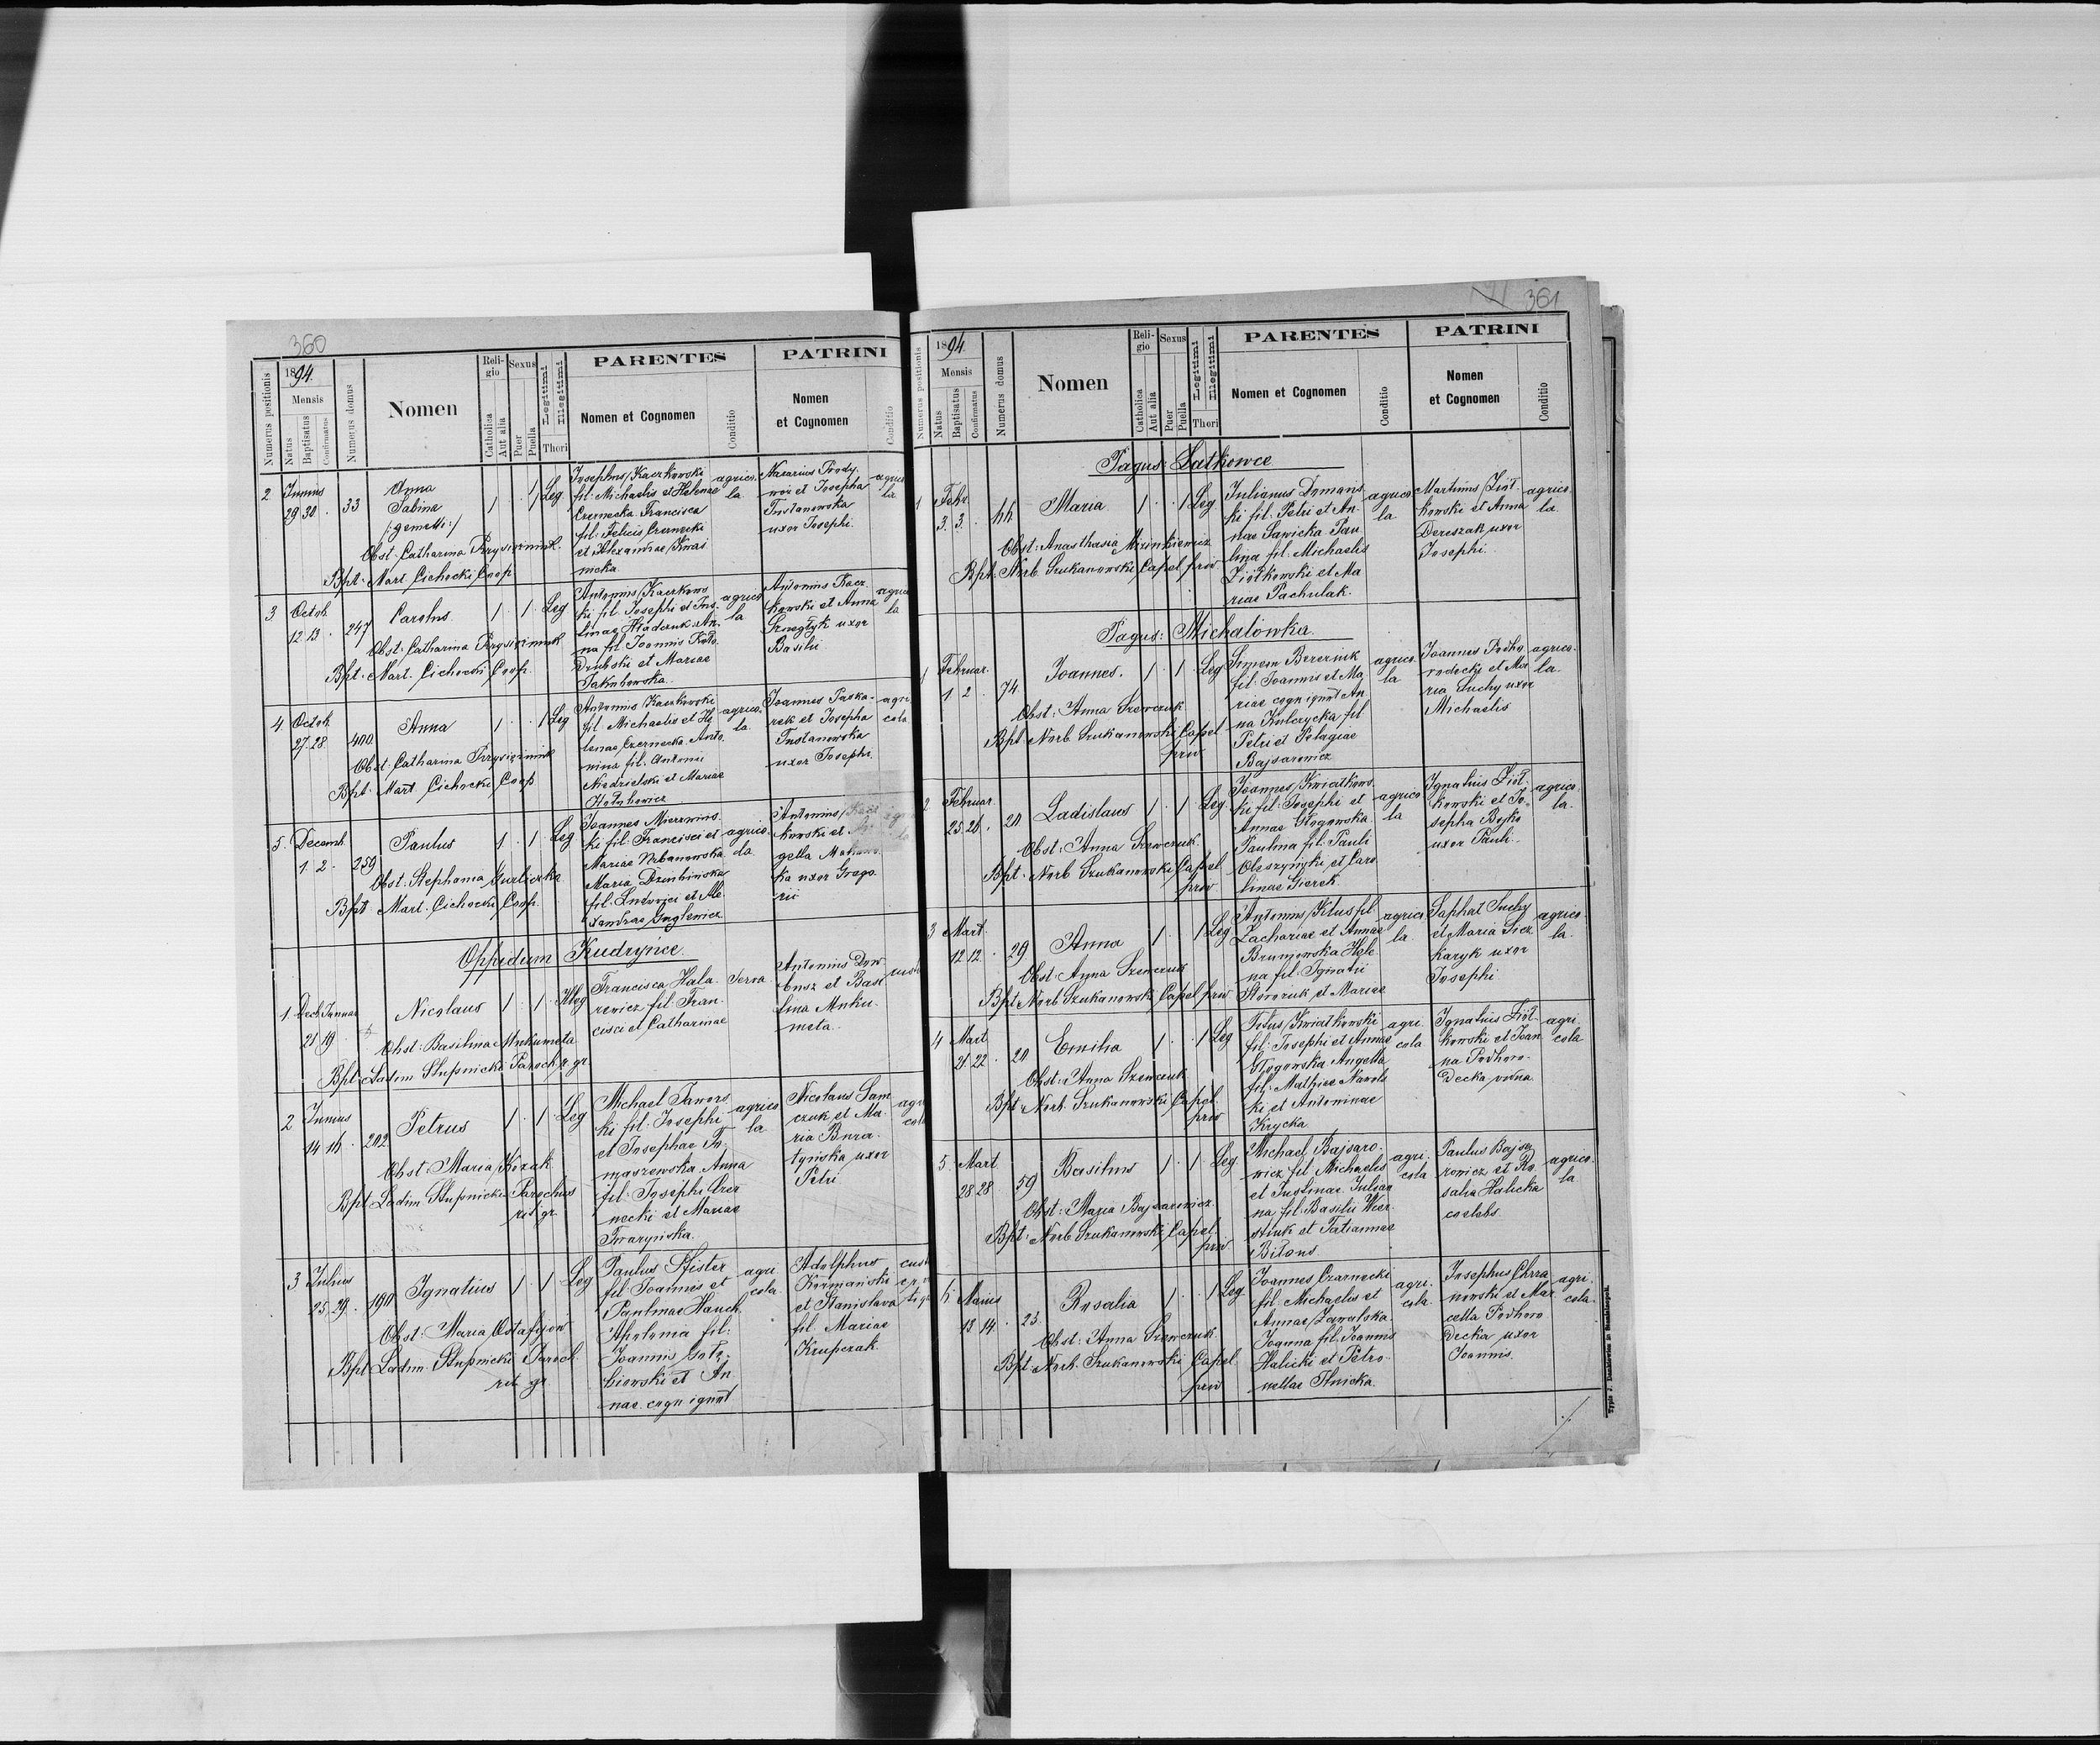 360
Numerus positionis
1894.
Mensis
Natus
Baptisatus
Confirmatus
Numerus domus
Nomen
Religio
Catholica
Aut alia
Sexus
Puer
Puella
Legitimi
Illegitimi
Thori
PARENTES
Nomen et Cognomen
Conditio
PATRINI
Nomen
et Cognomen
Conditio
2 Junius
29 30 . 33
Anna
Sabina
/:gemelli:/
1 . . 1 Leg
Obst: Catharina
Bpt: Mart. Cichocki Coop
Josephus Kaczkowski
fil: Michaelis et Helenae
Czernecka. Francisca
fil: Felicis Czernecki
et Alexandrae
agrico
la
Nazarius
et Josepha
uxor Josephi.
3 Octob.
12 13 . 247
Carolus.
1 . 1 . Leg
Obst: Catharina
Bpt: Mart. Cichocki Coop.
Antonius Kaczkows
ki fil. Josephi et
An
na fil Joannis
et Mariae
Jakubowska.
agrico
la
Antonius Kacz
kowski et Anna
uxor
Basilii
4. Octob.
27. 28. 400.
Anna
1 . . 1 Leg
Obst. Catharina
Bpt: Mart. Cichocki Coop
Antonius Kaczkowski
fil Michaelis et He
lenae Czernecka. Anto
nina fil. Antonii
Niedzielski et Mariae
agrico
la.
Joannes
et Josepha
uxor Josephi.
agri
cola
5. Decemb.
1. 2. 259
Paulus
1 . 1 . Leg
Obst: Stephania
Bpt Mart. Cichocki Coop.
Joannes
ki fil: Francisci et
Mariae Urbanowska
Maria
fil. Ludovici et Ale
xandrae
agrico
la
Antonius
kowski et
gella
ka uxor Grego
rii
Oppidum Kudrynce.
1. Dech Januar
21 19 .
Nicolaus 1 . 1 . Illeg
Obst: Basilina Mukumeta
Bpt: Ladim Słupnicki Paroch r. gr.
Francisca Hala
rewicz fil: Fran
cisci et Catharinae
serva
Antonius
et Basi
lina Muku
meta.
2 Junius
14 16 . 202
Petrus 1 . 1 Leg
Obst: Maria Kozak
Bpt Ladim Słupnicki Parochus
rit gr.
Michael Jawors
ki fil. Josephi
et Josephae To
maszewska. Anna
fil. Josephi Czer
necki et Mariae
Twaryńska.
agrico
la
Nicolaus Sam
czuk et Ma
ria Bura
tyńska uxor
Petri
3 Julius
25. 29. 190
Ignatius 1 . 1 Leg
Obst: Maria Ostafijow
Bpt Ladim. Słupnicki Paroch.
rit gr.
Paulus Pfister
fil Joannis et
Paulinae Hauch
Apolonia fil:
Joannis
et An
nae. cogn ignot
agri
cola
Adolphus
Kormański
et Stanislava
fil. Mariae
Krupczak.
361
Numerus positionis
1894.
Mensis
Natus
Baptisatus
Confirmatus
Numerus domus
Nomen
Religio
Catholica
Aut alia
Sexus
Puer
Puella
Legitimi
Illegitimi
Thori
PARENTES
Nomen et Cognomen
Conditio
PATRINI
Nomen
et Cognomen
Conditio
Pagus: Latkowce
1 Febr.
3. 3.
Maria 1 . . 1 Leg
Obst: Anasthasia Mizinkiewicz
Bpt: Norb. Szukanowski Capel priv
Julianus Domans
ki fil: Petri et An
nae Sawicka Pau
lina fil: Michaelis
Ziółkowski et Ma
riae Pachulak.
agrico
la
Martinus Ziół
kowski et Anna
Dereszak uxor
Josephi.
agrico
la.
Pagus: Michalówka.
1 Februar.
1. 2. 74.
Joannes. 1 . 1 . Leg
Obst: Anna Szewczuk
Bpt: Norb Szukanowski Capel
priv
Simeon Berezniuk
fil: Joannis et Ma
riae cogn ignot An
na Kulczycka fil
Petri et Pelagiae
Bajsarowicz
agrico
la
Joannes Podho
rodecki et Ma
ria Suchy uxor
Michaelis
agrico
la.
2 Februar.
25. 26. . 20
Ladislaus 1 . 1 Leg.
Obst: Anna Szewczuk
Bpt: Norb Szukanowski Capel
priv.
Joannes Kwiatkows
ki fil: Josephi et
Annae Głogowska
Paulina fil: Pauli
Olszyński et Caro
linae Gierek
agrico
la
Ignatius Ziół
kowski et Jo
sepha Bojko
uxor Pauli.
agrico
la.
3 Mart.
12 12. . 29
Anna 1 . . 1 Leg
Obst: Anna Szewczuk
Bpt Norb Szukanowski Capel priv
Antonius Kłus fil
Zachariae et Annae
Brumowska Hele
na fil: Ignatii
Storozuk et Mariae
agrico
la.
Japhat Suchy
et Maria Sicz
karyk uxor
Josephi
agrico
la.
4 Mart.
21. 22. . 20
Emilia 1 . . 1 Leg
Obst: Anna Szewczuk
Bpt: Norb. Szukanowski Capel.
priv
Titus Kwiatkowski
fil: Josephi et Annae
Głogowska Angella
fil: Mathiae Nawols
ki et Antoninae
Krycka
agri
cola
Ignatius Ziół
kowski et Joan
na Podhoro
decka vidua.
agri
cola
5. Mart.
28 28 59
Basilius 1 . 1 . Leg.
Obst: Maria Bajsarowicz
Bpt: Norb Szukanowski Capel.
priv
Michael Bajsaro
wicz fil Michaelis
et Justinae. Julian
na fil: Basilii Wer
stiuk et Tatiannae
Bilous.
agri.
cola
Paulus Bajsa
rowicz et Ro
salia Halicka
coelebs.
agrico
la
6 Maius
13 14 . 23.
Rosalia 1 . . 1 Leg
Obst: Anna Szewczuk
Bpt: Norb. Szukanowski Capel.
priv
Joannes Czarnecki
fil: Michaelis et
Annae Zawalska
Joanna fil. Joannis
Halicki et Petro
nellae Ilnicka.
agri
cola.
Josephus Chrza
nowski et Mar
cella Podhoro
decka uxor
Joannis.
agri
cola.